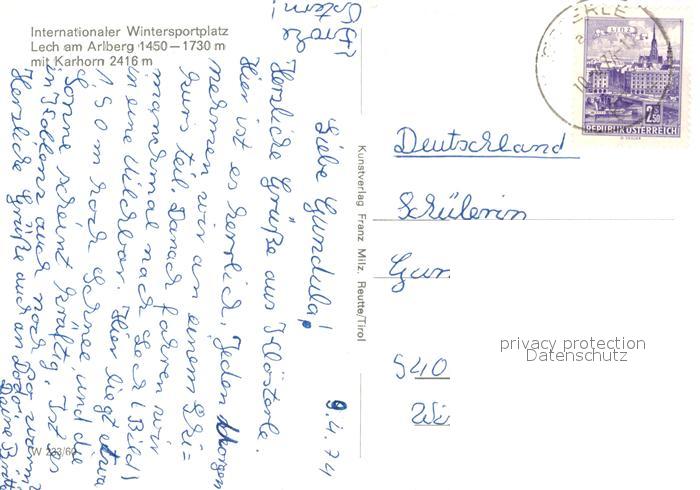 Internationaler Wintersportplatz
Lech am Arlberg 1450 – 1730 m
mit Karhorn 2416 m
Frohe
Ostern!
9.4.74
Liebe Gundula!
Herzliche Grüße aus Klösterle.
Hier ist es herrlich. Jeden Morgen
nehmen wir an einem Ski=
kurs teil. Danach fahren wir
manchmal nach Lech (Bild)
in eine Milchbar. Hier liegt etwa
1,50 m hoch Schnee und die
Sonne scheint kräftig. Ist es
in Koblenz auch noch so warm?
Herzliche Grüße auch an Dodo.
Deine
W 233/60
Kunstverlag Franz Milz, Reutte/Tirol
LINZ
2.50
REPUBLIK ÖSTERREICH
Deutschland
Schülerin
Gun
540
privacy protection
Datenschutz